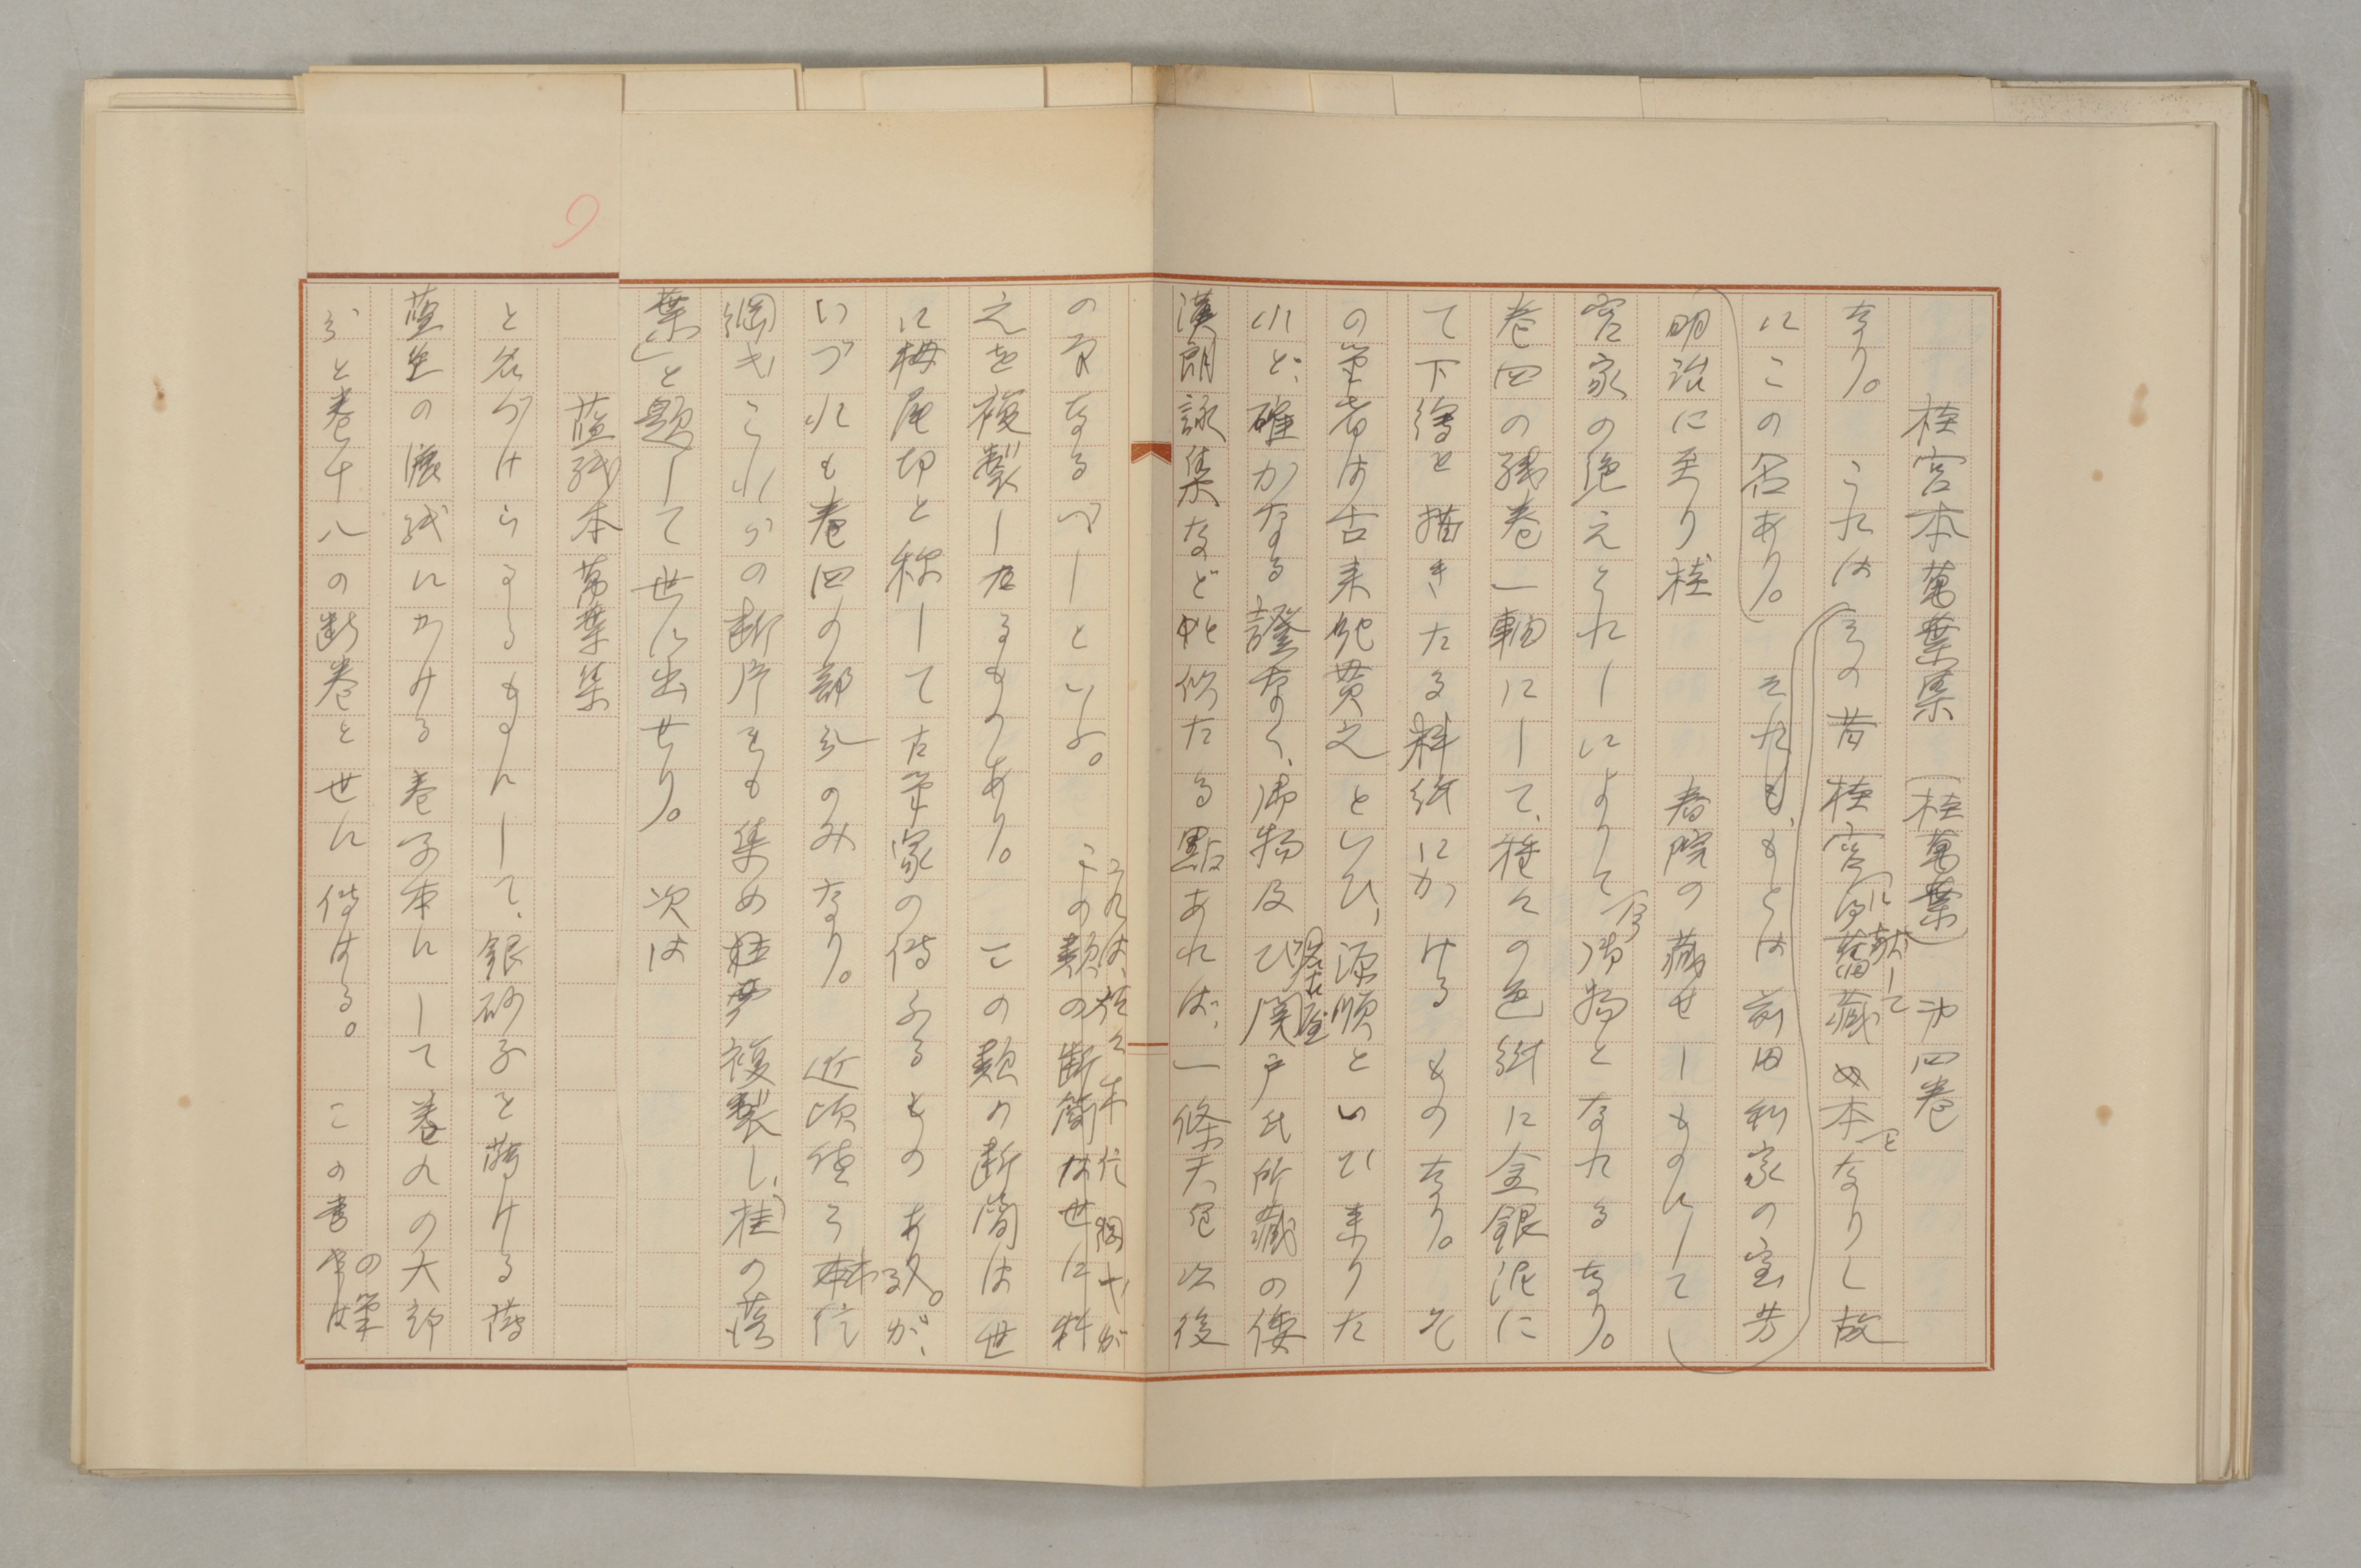 桂宮本萬葉集 (桂萬葉) 神田 四巻
なり。 これはその昔桂宮に献して舊藏の本となりし故
にこの名あり。 それも、もとは前田利家の室芳
明治に至り桂
春院の藏せしものにして
宮家の絶えられしによりて今御物となれるなり。
巻四の残巻一軸にして、種々の色紙に金銀泥に
て下繪を描きたる料紙にかけるものなり。 そ
の筆者は古来紀貫之といひ、源順といひ来りた
れど、確かなる證なく、御物及び関戸氏所藏の倭
漢朗詠集などに似たる點あれば、一條天皇以後
のものなるべしといふ。 この類の断簡は世に
これは、佐々木信綱氏が
之を複製したるものあり。 この類の断簡は世
に栂尾切と称して古筆家の傳ふるものあるが、
いづれも巻四の部分のみなり。 近頃佐々木信
綱氏これらの断片をも集め複製し、桂の落
葉」と題して世に出せり。 次は
藍紙本萬葉集
と名づけらるるものにして、銀砂子を蒔ける薄
藍色の漉紙にかける巻子本にして巻九の大部
分と巻十八の断巻とせに傳はる。 この書の筆